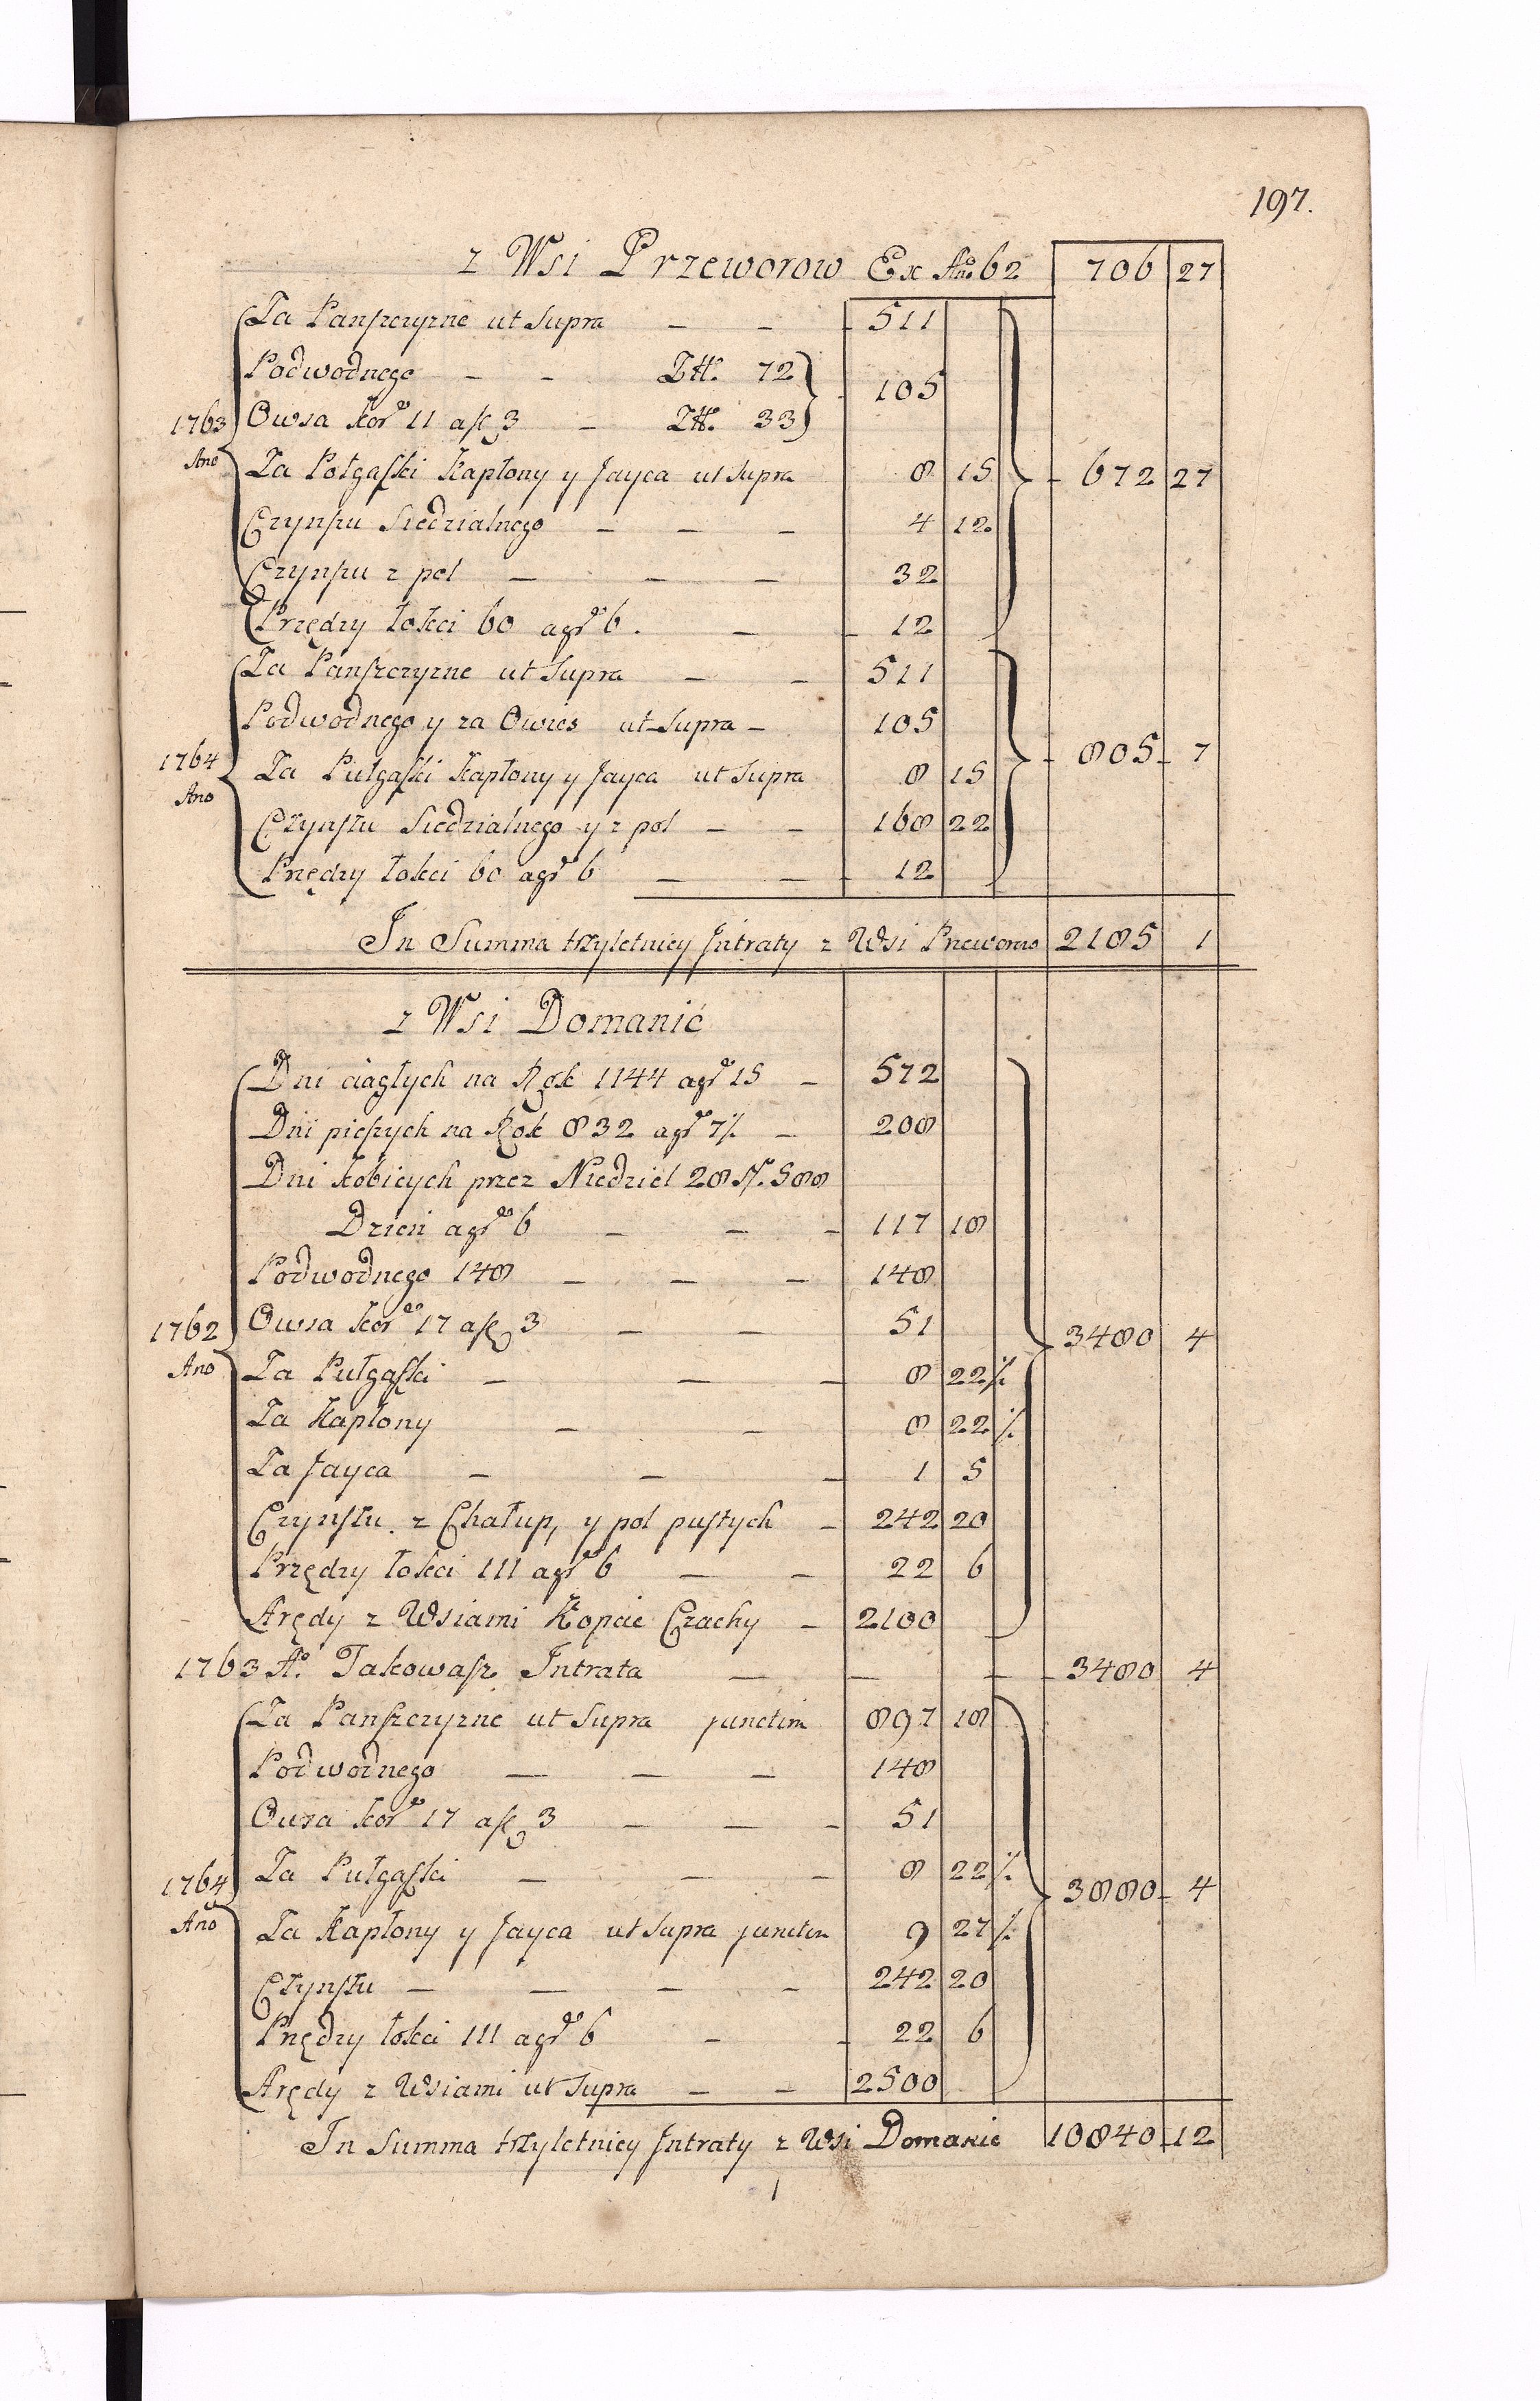 197.
z Wsi Przeworow Ex Ano 62 706 27
Za Panszczyznę ut Supra — — 511
Podwodnego — — Złł. 72
105
Owsa kor. 11 a ſz 3 — Złł. 33
1763
Ano
Za Połgąſki Kapłony y Jayca ut Supra 8 15 672 27
Czynſzu Siedzialnego — — — 4 12
Czynſzu z pol — — — 32
Przędzy łokci 60 agr 6. — 12
Za Panſzczyznę ut Supra — — 511
Podwodnego y za Owies ut Supra — 105
1764
Ano
Za Pułgąſki Kapłony y Jayca ut Supra 8 15 805 7
Czynſzu Siedzialnego y z pol — — 168 22
Przędzy łokci 60 agr 6 — — 12
In Summa trzyletniey Intraty z Wsi Przeworow 2185 1
z Wsi Domanić
Dni ciągłych na Rok 1144 agr 15 — 572
Dni pieſzych na Rok 832 agr 7½ — 208
Dni kobicych przez Niedziel 28 N. 588
Dzień agr 6 — — — 117 18
Podwodnego 148 — — — 148
Owsa kor 17 a ſz 3 — — 51
1762
Ano
3480 4
Za Pułgąſki — — — 8 22½
Za Kapłony — — 8 22½
Za Jayca — — — 1 5
Czynſzu z Chałup, y pol puſtych — 242 20
Przędzy łokci 111 agr 6 — — 22 6
Arędy z Wsiami Kopcie Czachy — 2100
1763 Ao. Takowaſz Intrata — — — 3480 4
Za Panſzczyznę ut Supra junctim 897 18
Podwodnego — — — 148
Owsa kor 17 a ſz 3 — — — 51
Za Pułgąſki — — — 8 22½
1764
Ano
3880 4
Za Kapłony y Jayca ut Supra junctim 9 27½
Czynſzu — — — — 242 20
Przędzy łokci 111 agr 6 — — 22 6
Arędy z Wsiami ut Supra — — 2500
In Summa trzyletniey Intraty z Wsi Domanic 10840 12